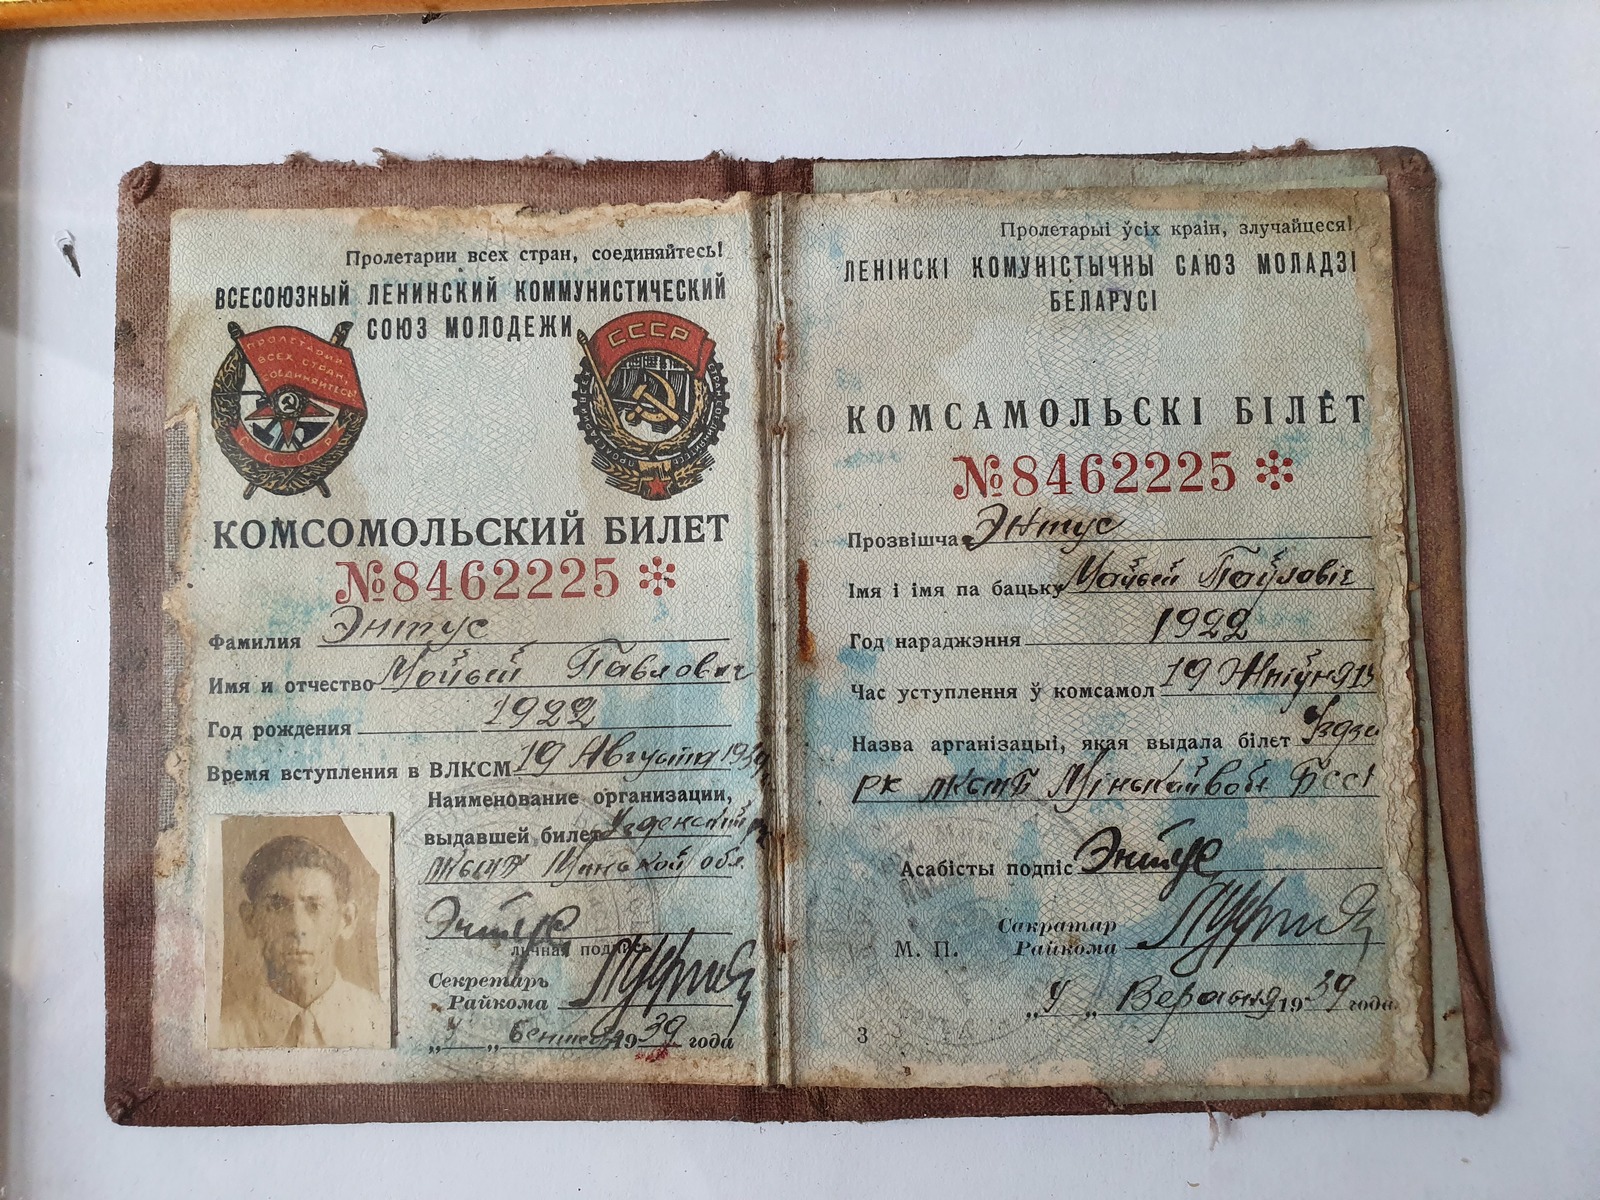 Пролетарии всех стран, соединяйтесь!
ВСЕСОЮЗНЫЙ ЛЕНИНСКИЙ КОММУНИСТИЧЕСКИЙ
СОЮЗ МОЛОДЕЖИ
ПРОЛЕТАРИИ
ВСЕХ СТРАН,
СОЕДИНЯЙТЕСЬ
СССР
СССР
КОМСОМОЛЬСКИЙ БИЛЕТ
№8462225
Фамилия Энтус
Имя и отчество Мойсей Павлович
Год рождения 1922
Время вступления в ВЛКСМ 19 Августа 1939
Наименование организации,
выдавшей билет Узденский
ЛКСМБ Минской обл.
Энтус
личная подпись
Секретарь
Райкома
„4„ 1939 года
Пролетарыі ўсіх краін, злучайцеся!
ЛЕНІНСКІ КОМУНІСТЫЧНЫ САЮЗ МОЛАДЗІ
БЕЛАРУСІ
КОМСАМОЛЬСКІ БІЛЕТ
№8462225
Прозвішча Энтус
Імя і імя па бацьку Мойсей Паўловіч
Год нараджэння 1922
Час уступлення ў комсамол 19 Жніўня 19
Назва арганізацыі, якая выдала білет
РК ЛКСМБ Мінскай вобл БССР
Асабісты подпіс Энтус
Сакратар
М. П. Райкома
„4„ Верасьня 1939 года
3